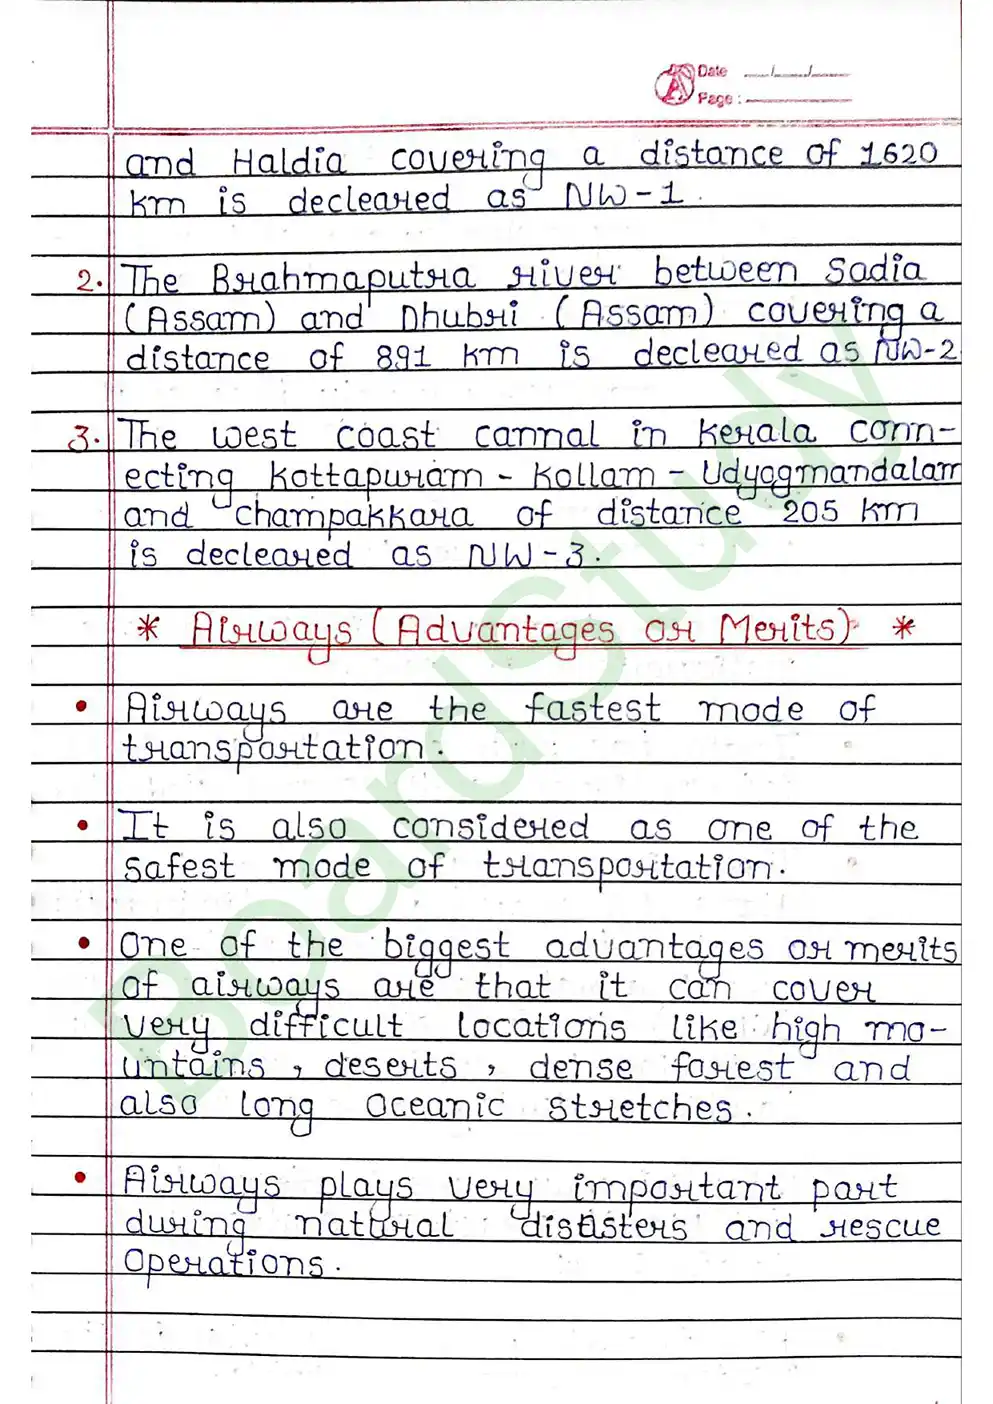 Date __/__/__
Page :
and Haldia covering a distance of 1620
km is decleared as NW-1.
2. The Brahmaputra river between Sadia
(Assam) and Dhubri (Assam) covering a
distance of 891 km is decleared as NW-2
3. The west coast cannal in Kerala conn-
ecting Kottapuram - Kollam - Udyogmandalam
and champakkara of distance 205 km
is decleared as NW-3.
* Airways (Advantages or Merits) *
• Airways are the fastest mode of
transportation.
• It is also considered as one of the
safest mode of transportation.
• One of the biggest advantages or merits
of airways are that it can cover
very difficult locations like high mo-
untains, deserts, dense forest and
also long Oceanic stretches.
• Airways plays very important part
during natural disasters and rescue
Operations.
BoardStudy